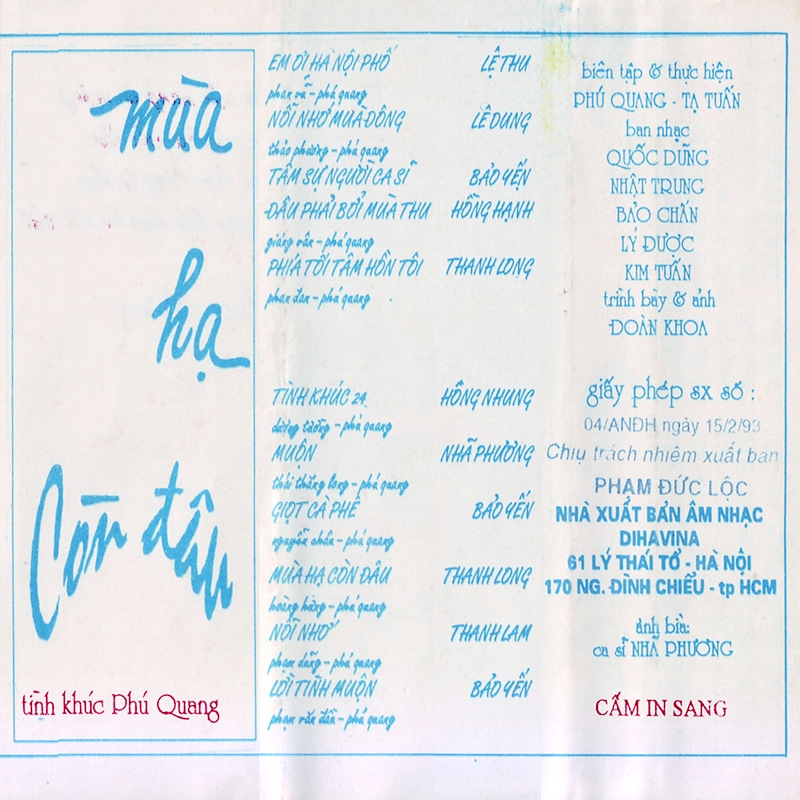 mùa
hạ
Còn đâu
tình khúc Phú Quang
EM ƠI HÀ NỘI PHỐ LỆ THU
phan vũ - phú quang
NỖI NHỚ MÙA ĐÔNG LÊ DUNG
thảo phương - phú quang
TÂM SỰ NGƯỜI CA SĨ BẢO YẾN
ĐÂU PHẢI BỞI MÙA THU HỒNG HẠNH
giáng vân - phú quang
PHÍA TỐI TÂM HỒN TÔI THANH LONG
phan đan - phú quang
TÌNH KHÚC 24 HỒNG NHUNG
dương tường - phú quang
MUỘN NHÃ PHƯƠNG
thái thăng long - phú quang
GIỌT CÀ PHÊ BẢO YẾN
nguyễn châu - phú quang
MÙA HẠ CÒN ĐÂU THANH LONG
hoàng hưng - phú quang
NỖI NHỚ THANH LAM
phạm dũng - phú quang
LỜI TÌNH MUỘN BẢO YẾN
phạm văn đần - phú quang
biên tập & thực hiện
PHÚ QUANG - TẠ TUẤN
ban nhạc
QUỐC DŨNG
NHẬT TRUNG
BẢO CHẤN
LÝ ĐƯỢC
KIM TUẤN
trình bày & ảnh
ĐOÀN KHOA
giấy phép sx số :
04/ANĐH ngày 15/2/93
Chịu trách nhiệm xuất bản
PHẠM ĐỨC LỘC
NHÀ XUẤT BẢN ÂM NHẠC
DIHAVINA
61 LÝ THÁI TỔ - HÀ NỘI
170 NG. ĐÌNH CHIỂU - tp HCM
ảnh bìa:
ca sĩ NHÃ PHƯƠNG
CẤM IN SANG